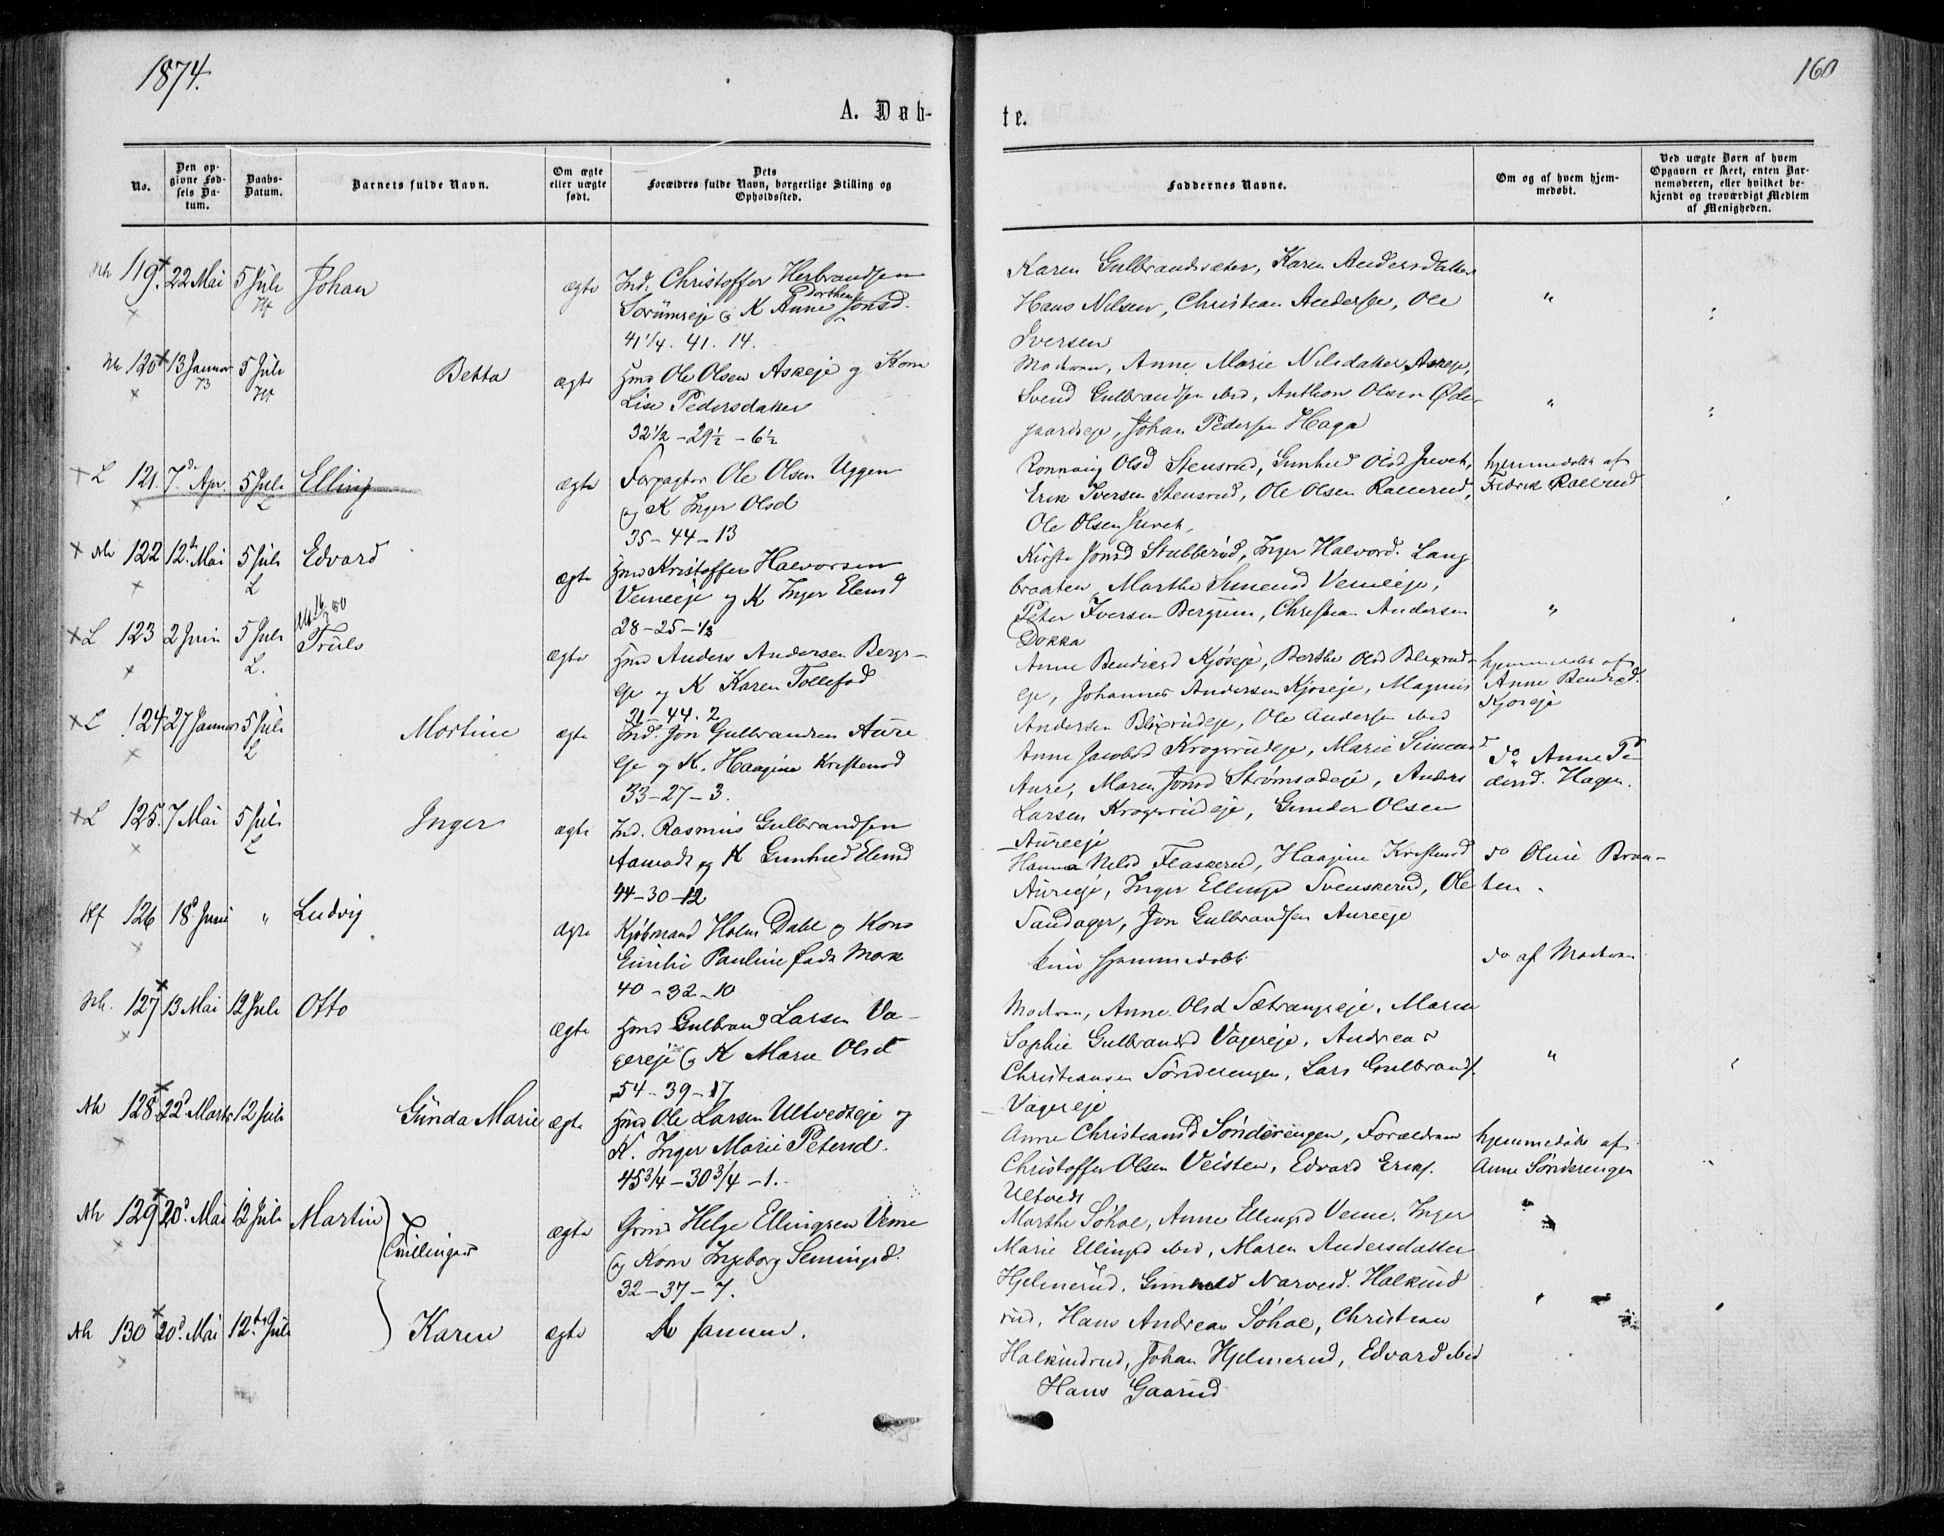 1874.
160
A. Døb-
te.
No.
Den op-
givne Fød-
sels Da-
tum.
Daabs-
Datum.
Barnets fulde Navn.
Om ægte
eller uægte
født.
Dets
Forældres fulde Navn, borgerlige Stilling og
Opholdssted.
Faddernes Navne.
Om og af hvem hjem-
medøbt.
Ved uægte Børn af hvem
Opgaven er skeet, enten Bar-
nemoderen, eller hvilket be-
kjendt og troværdigt Medlem
af Menigheden.
119. 22 Mai 5 Juli Johan ægte Ind. Christoffer Herbrandsen
Dorthea
Sørumseje og K Anne Jonsd.
41 1/4. 41. 14.
Karen Gulbrandsæter, Karen Andersdatter
Hans Nilsen, Christian Andersen, Ole
Iversen
"
120 13 Januar 73 5 Juli Betta ægte Hmd Ole Olsen Askeje og Kone
Lise Pedersdatter
32 1/2 - 29 1/2 - 6 1/2
Modren, Anne Marie Nilsdatter Askeje,
Svend Gulbrandsen ibid, Anthon Olsen Øde-
gaardseje, Johan Pedersen Haga
"
L 121. 7de Apr. 5 Juli L Elling ægte Forpagter Ole Olsen Uggen
og K Inger Olsd
35 - 44 - 13
Rønnaug Olsd Stensrud, Gunhild Olsd Juveh,
Erik Iversen Stensrud, Ole Olsen Rallerud,
Ole Olsen Juveh,
hjemmedøbt af
Fredrik Rallerud
122 12te Mai 5 Juli L Edvard ægte Hmd Kristoffer Halvorsen
Vemeeje og K Inger Elensd
28 - 25 - 1/2
Kirsti Jonsd Stubberud, Inger Halvord. Lang
braaten, Marthe Simensd Vemeeje,
Peter Iversen Bergum, Christian Andersen
Dokka
"
L 123 2 Juni 5 Juli L. Truls ægte Hmd Anders Andersen Bergs-
eje og K Karen Tollefsd
31 - 44. 2
Anne Bendiksd Kjøseje, Berthe Olsd Blixrud-
eje, Johannes Andersen Kjøseje, Magnus
Andersen Blixrudeje, Ole Andersen ibid
hjemmedøbt af
Anne Bendixd.
Kjøseje
L 124 27 Januar 5 Juli L Martine ægte Ind. Jon Gulbrandsen Aure
eje og K. Haagine Kristensd
33 - 27 - 3.
Anne Jacobsd Krogsrudeje, Marie Simensd
Aure, Maren Jonsd Strømsodeje, Anders
Larsen Krogsrudeje, Gunder Olsen
Aureeje
do Anne Pe-
dersd. Hagen.
L 125. 7 Mai 5 Juli L Inger ægte Ind. Rasmus Gulbrandsen
Aamodt og K Gunhild Elensd
44 - 30 - 12
Hanna Nilsd Flaskerud, Haagine Kristensd
Aureeje, Inger Ellingsd Svenskerud, Ole
Sandager, Jon Gulbrandsen Aureeje
do Oline Braa-
ten.
Hf 126 18d Juni " Ludvig ægte Kjøbmand Holm Dahl og Kone
Emilie Pauline født Moe
40 - 32 - 10
kun hjemmedøbt
do af Modren
127 13 Mai 12 Juli Otto ægte Hmd Gulbrand Larsen Va-
gereje og K Marie Olsd
54 - 39 - 17
Modren, Anne Olsd Sætrangseje, Maren
Sophie Gulbrandsd Vagereje, Andreas
Christiansen Sønderengen, Lars Gulbrands.
Vagereje
"
128 22d Marts 12 Juli Gunda Marie ægte Hmd Ole Larsen Ultvedteje og
K. Inger Marie Petersd.
45 3/4 - 30 3/4 - 1.
Anne Christiansd Sønderengen, Forældrene
Christoffer Olsen Veisten, Edvard Eriks.
Ultvedt
hjemmedøbt af
Anne Sønderengen
129 20d Mai 12 Juli Martin Tvillinger ægte Grmd Helge Ellingsen Veme
og Kone Ingeborg Semingsd.
32 - 37 - 7.
Marthe Søhoe, Anne Ellingsd Veme, Inger
Marie Ellingsd ibid, Maren Andersdatter
Hjelmerud, Gunhild Narvesd. Halkind
rud, Hans Andreas Søhoe, Christian
Halkindrud, Johan Hjelmerud, Edvard ibid
Hans Gaarud
130 20d. Mai 12te Juli Karen ægte De samme.